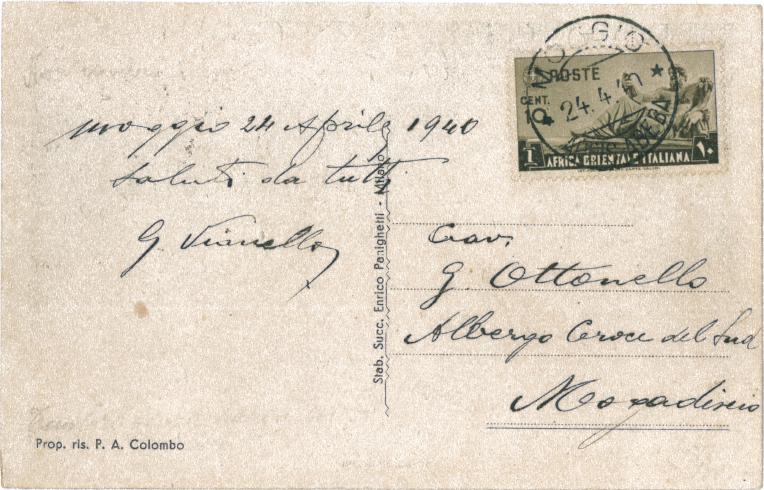 moggio 24 Aprile 1940
saluti da tutti
G. Vianello
Stab. Succ. Enrico Panighetti - Milano
Prop. ris. P. A. Colombo
MOGGIO
24.4.40
POSTE
CENT.
10
1 AFRICA ORIENTALE ITALIANA ١٠
Cav.
G. Ottonello
Albergo Croce del Sud
Mogadiscio